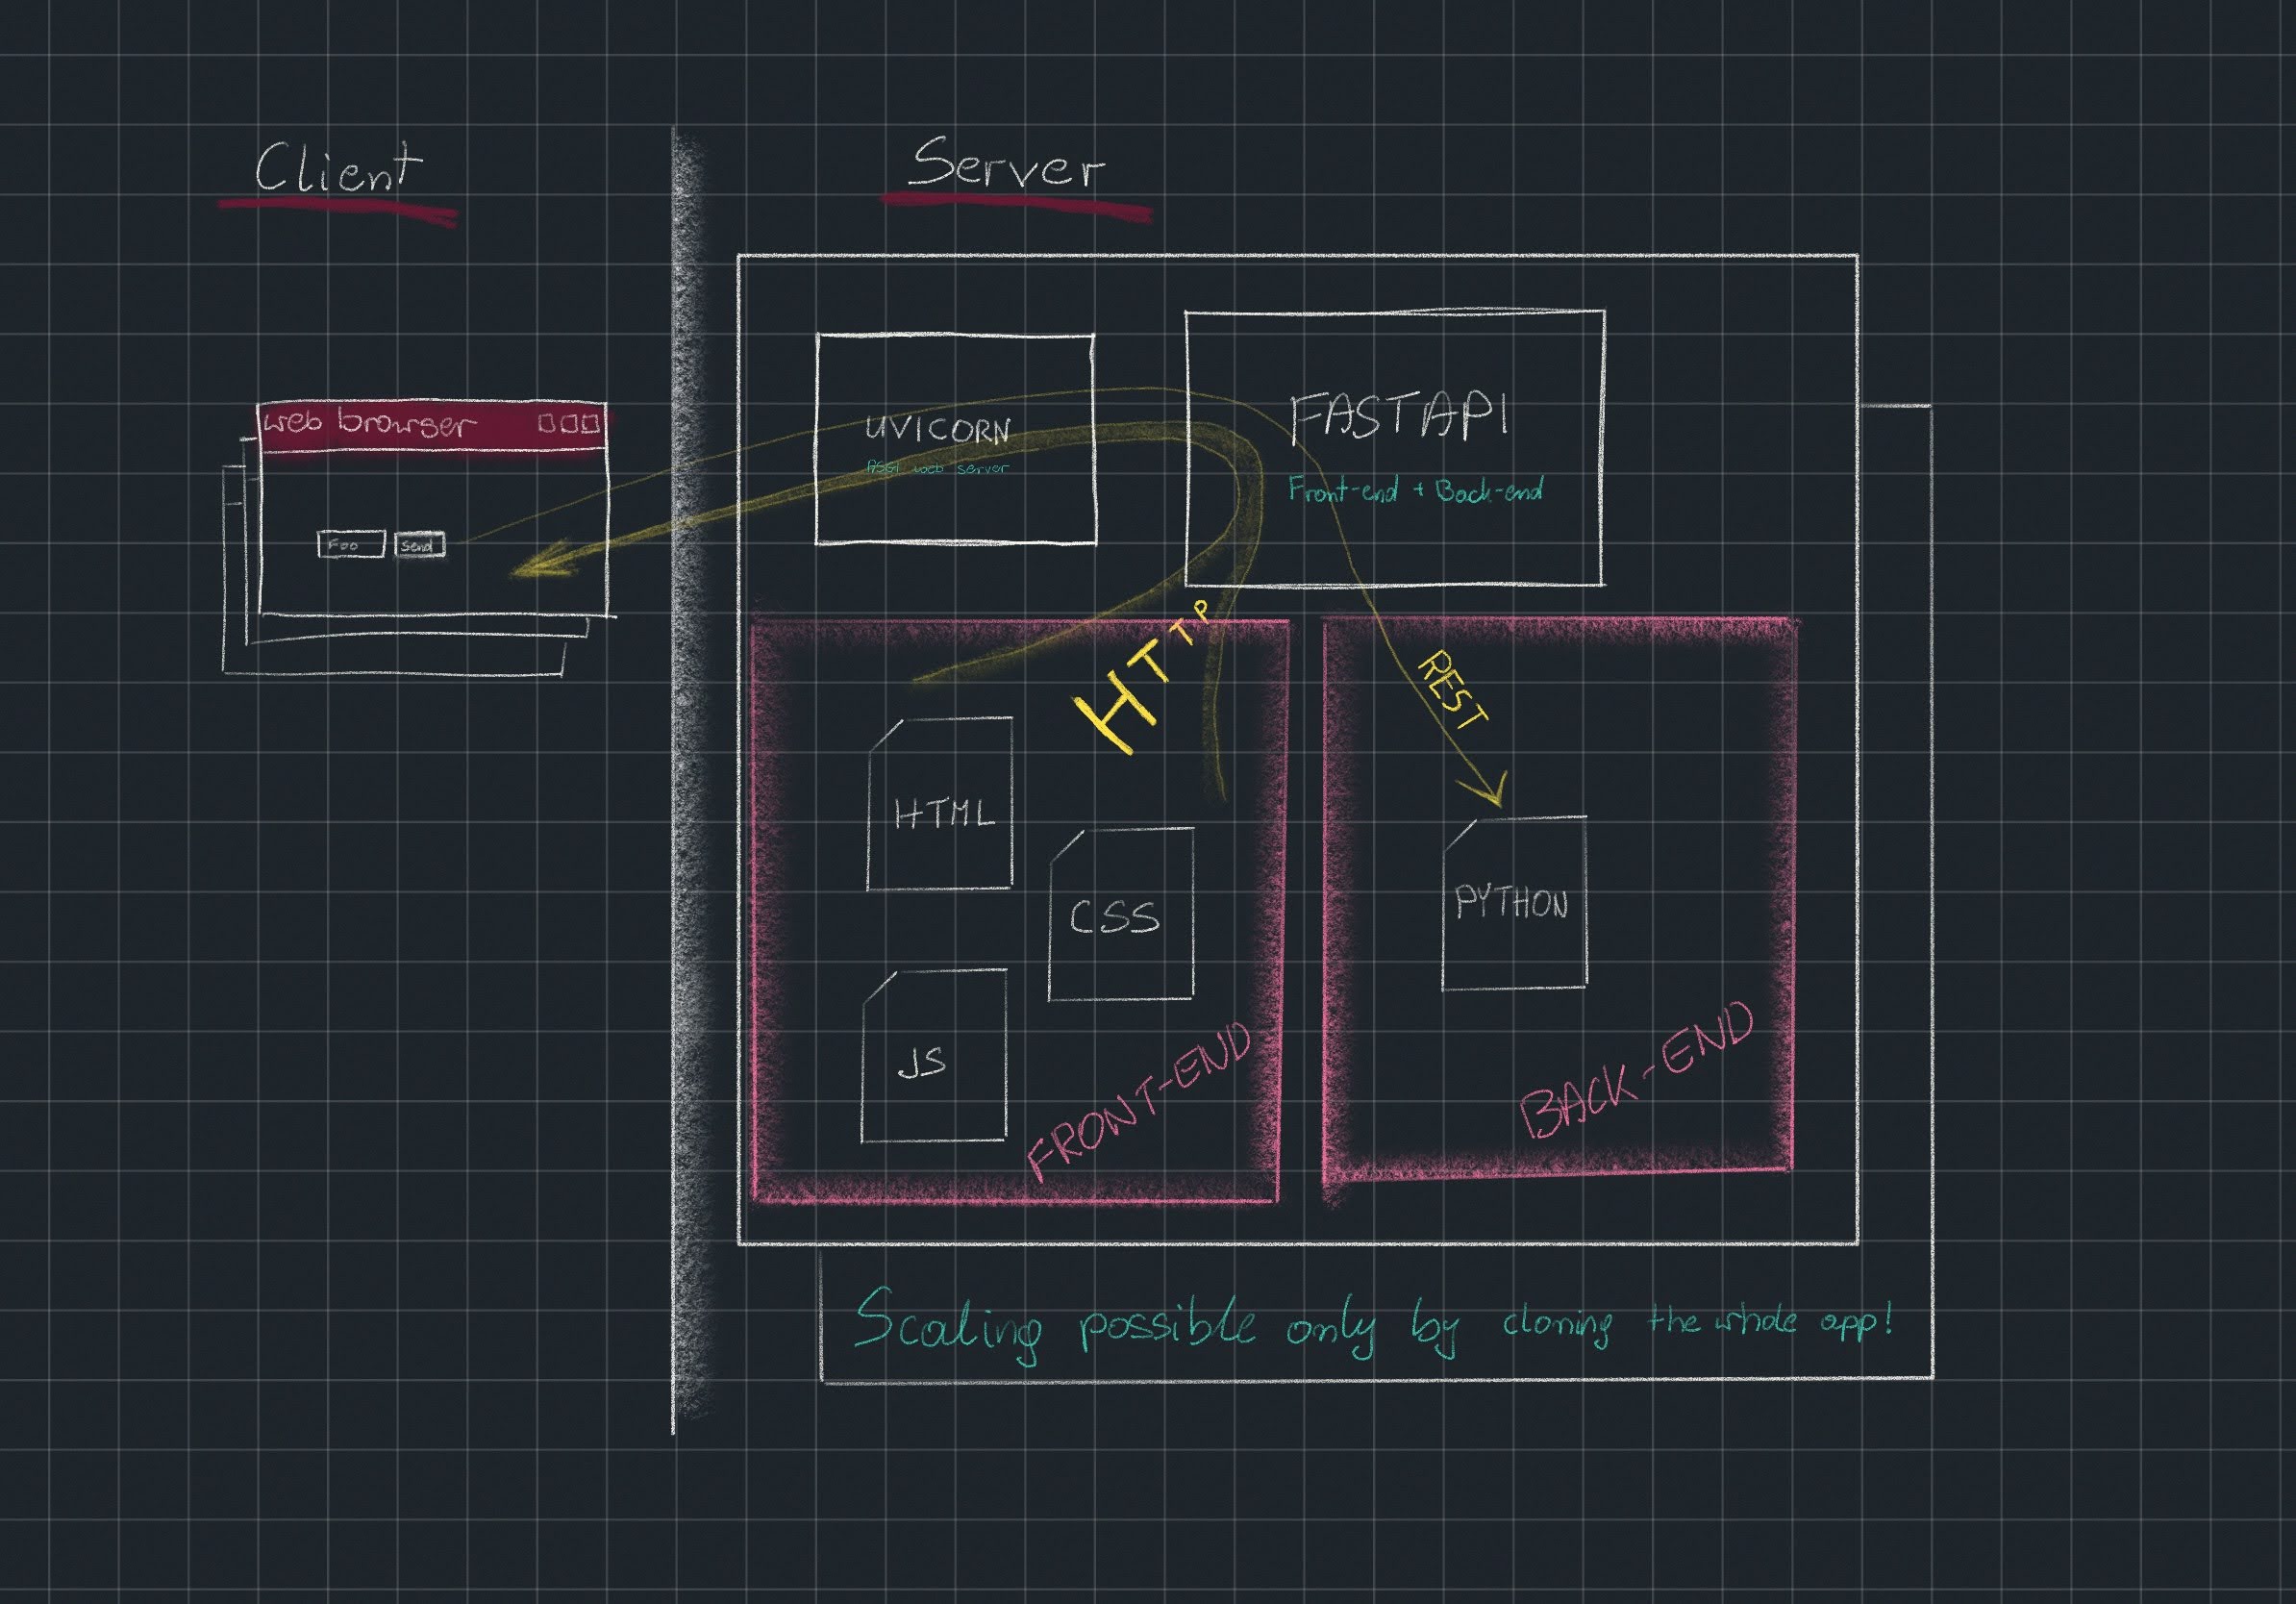 Client
Server
web browser
Foo
Send
UVICORN
ASGI web server
FASTAPI
Front-end + Back-end
HTTP
REST
HTML
CSS
JS
FRONT-END
PYTHON
BACK-END
Scaling possible only by cloning the whole app!